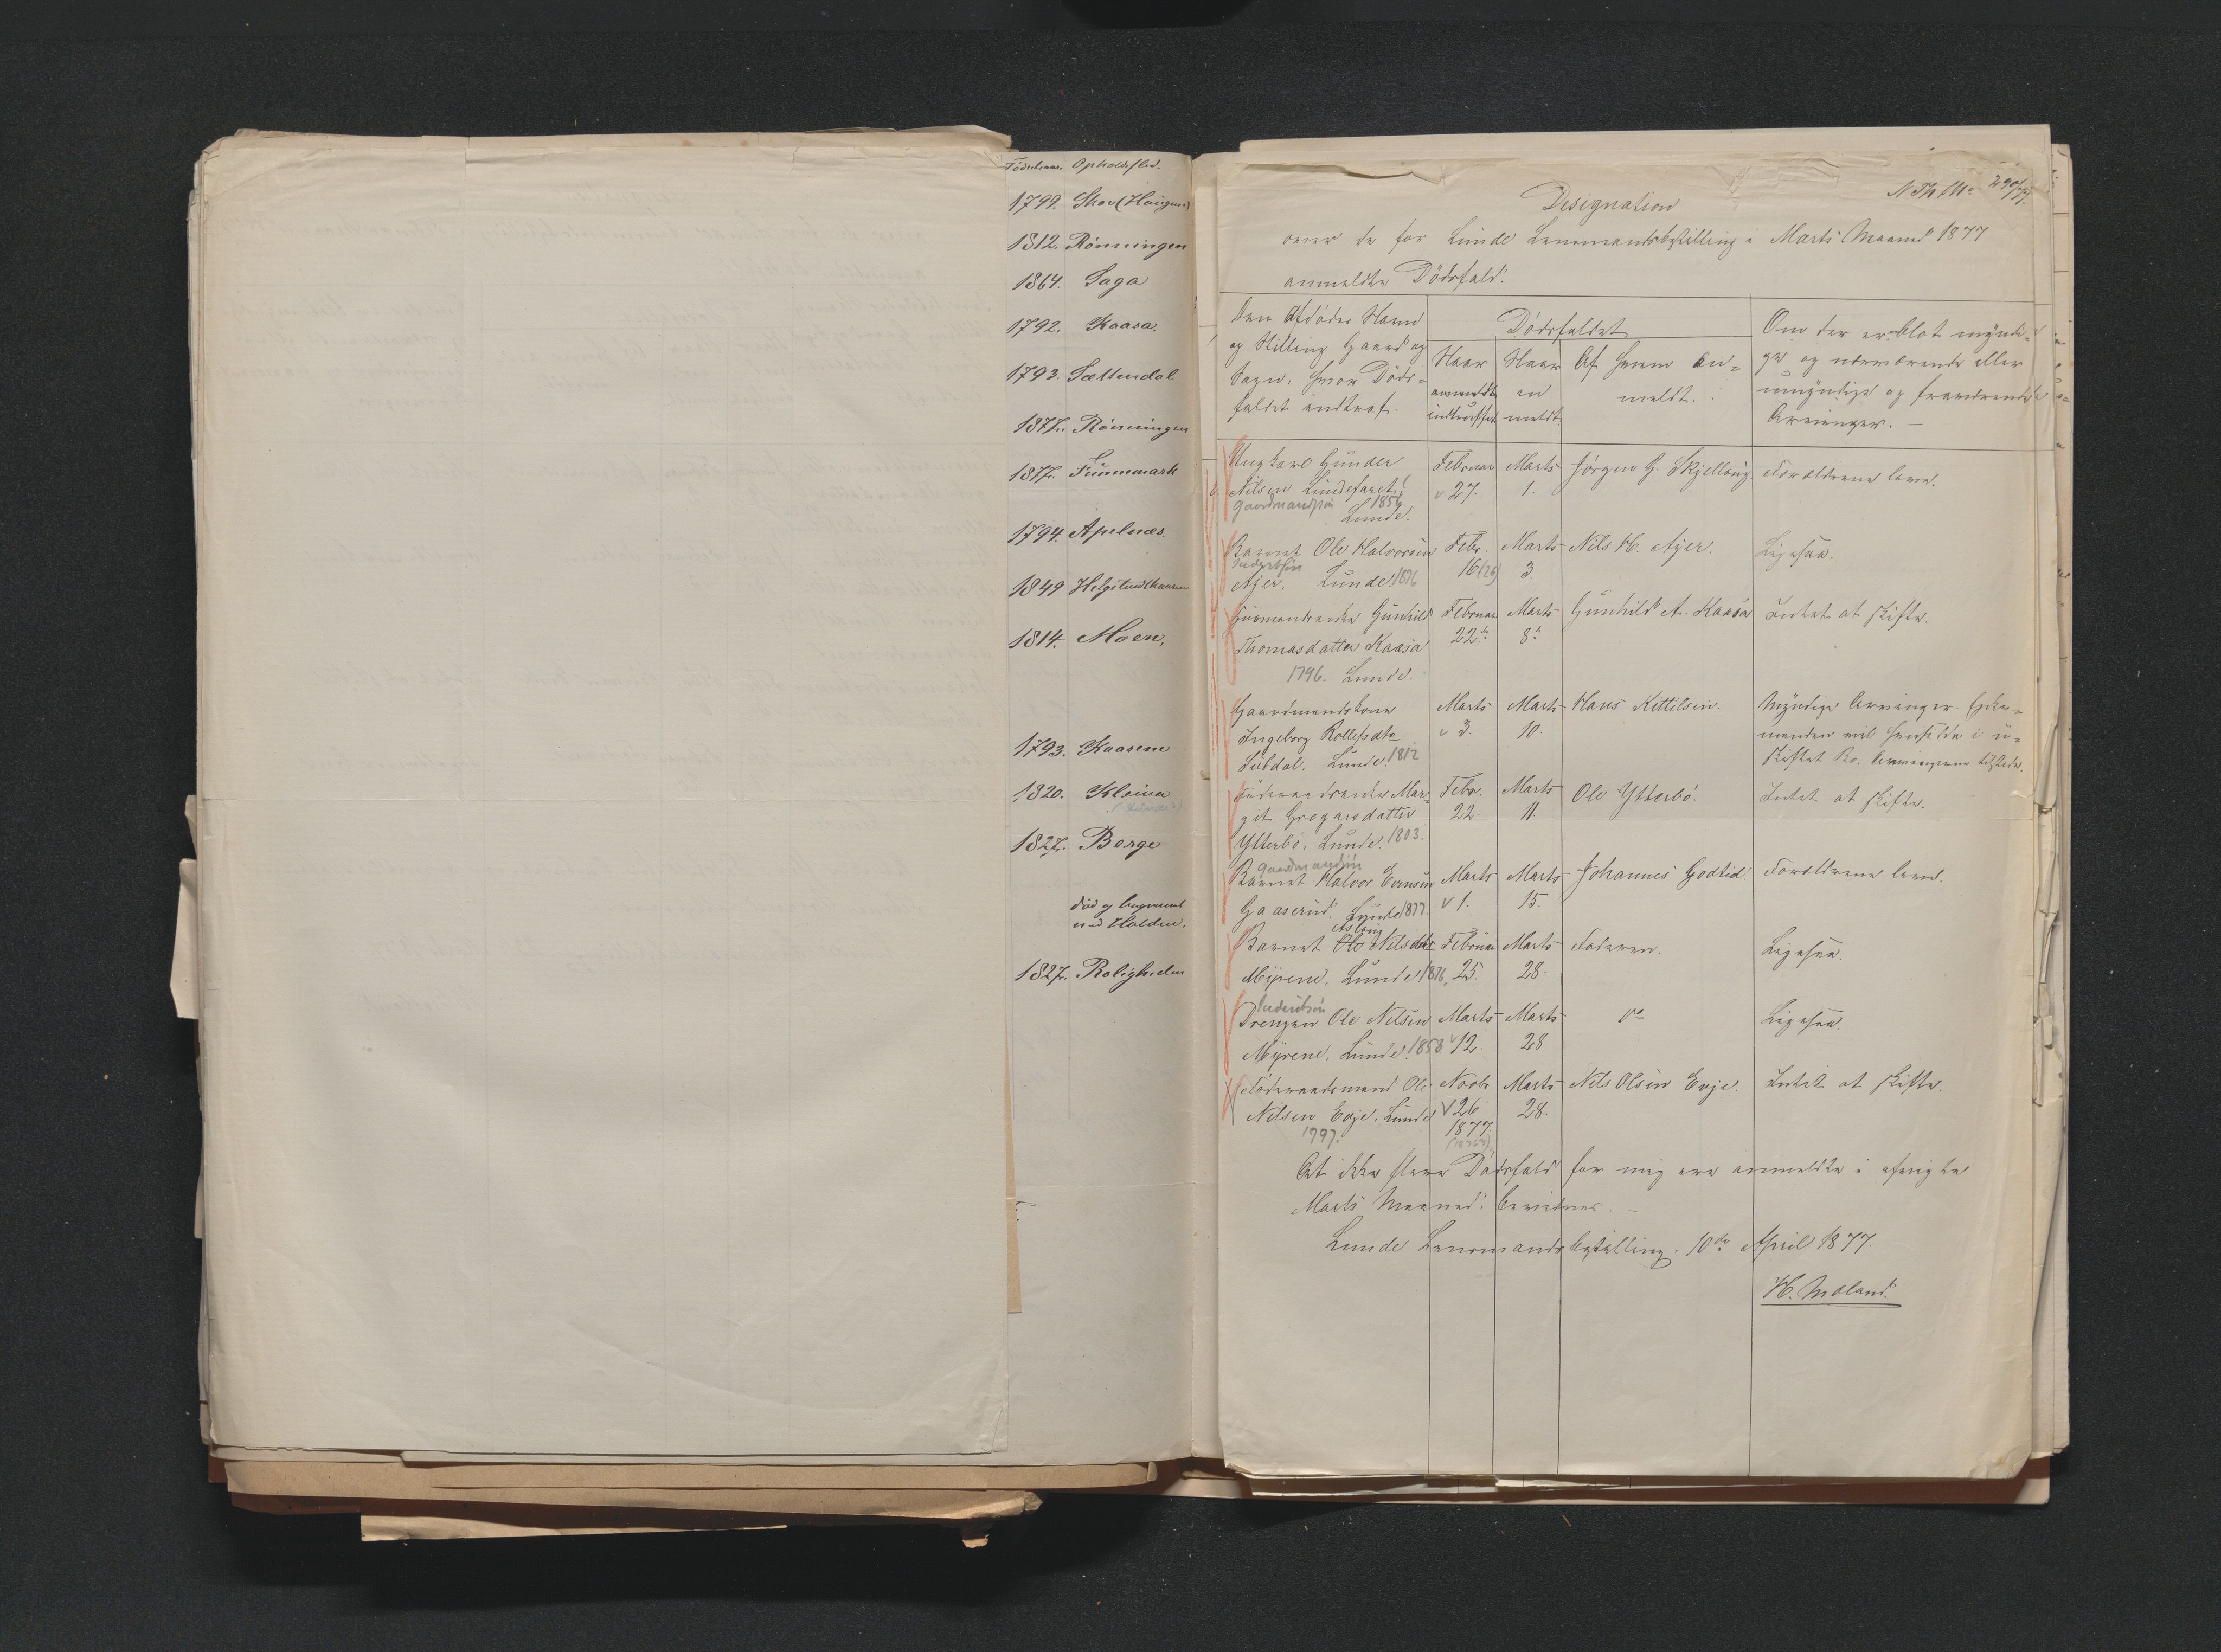 Fødselsaar. Opholdssted.
1799. Skov (Haugen)
1812. Rönningen
1864. Saga
1792. Kaasa.
1793. Sættendal
1877. Rönningen
1877. Funnemark
1794. Apelnæs.
1849 Helgetundhaugen
1814. Moen.
1793. Kaasene
1820. Kleiva
(Lunde)
1827. Berge
död og begravet
ved Holden.
1827. Roligheden
N. Th. No 290/77.
Designation
over de for Lunde Lensmandsbestilling i Marts Maaned 1877
anmeldte Dödsfald.
Den Afdødes Navn
og Stilling Gaard og
Sogn, hvor Døds-
faldet indtraf.
Dödsfaldet
Naar
indtruffet
Naar
an
meldt.
Af hvem an-
meldt.
Om der er blot myndi-
ge og nærværende eller
umyndige og fraværende
Arvinger. —
Ungkarl Gunder
Nilsen Lundefaret
Gaardmandssøn 1856
Lunde.
Februar
27.
Marts
1.
Jörgen G. Skjelbug.
Forældrene leve.
Barnet Ole Halvorsen
Inderstsøn
Ajer. Lunde 1876
Febr.
16 (26)
Marts
3.
Nils H. Ajer.
Ligesaa.
Husmandsenke Gunhild
Thomasdatter Kaasa
1796. Lunde.
Februar
22.
Marts
8.
Gunhild A. Kaasa
Intet at skifte.
Gaardmandskone
Ingeborg Rollefsdtr
Libdal. Lunde. 1812
Marts
3.
Marts
10.
Hans Kittilsen.
Myndige Arvinger. Enke-
manden vil hensidde i u-
skiftet Bo. Arvingerne tilstede.
Föderaadsenke Mar-
git Gregarsdatter
Ytterbö. Lunde. 1803.
Febr.
22.
Marts
11.
Ole Ytterbö.
Intet at skifte.
Gaardmandssøn
Barnet Halvor Evensen
Gaaserud. Lunde 1877.
Marts
1.
Marts
15.
Johannes Godtid.
Forældrene leve.
Aslaug
Barnet Ole Nilsdtr
Myrene. Lunde 1876.
Februar
25.
Marts
28.
Faderen.
Ligesaa.
Inderstsøn
Drengen Ole Nilsen
Myrene. Lunde. 1858
Marts
12.
Marts
28
do
Ligesaa.
Föderaadsmand Ole
Nilsen Evje. Lunde
1797.
Novbr
26
1877.
(1876?)
Marts
28.
Nils Olsen Evje.
Intet at skifte.
At ikke flere Dödsfald for mig ere anmeldte i afvigte
Marts Maaned, bevidnes. —
Lunde Lensmandsbestilling. 10de April 1877.
H. Moland.